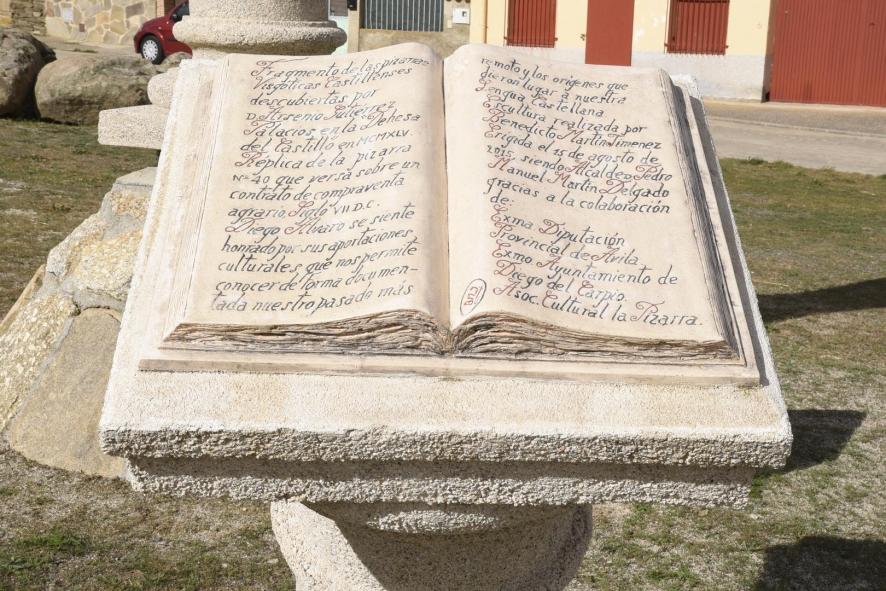 Fragmento de las pizarras
Visgoticas Castillenses
descubiertas por
D. Arsenio Gutierrez
Palacios en la Dehesa
del Castillo en MCMXLV.
Replica de la pizarra
Nº 40 que versa sobre un
contrato de compraventa
agrario, Siglo VII D.C.
Diego Alvaro se siente
honrado por sus aportaciones
culturales que nos permite
conocer de forma documen-
tada nuestro pasado más
remoto y los origenes que
dieron lugar a nuestra
Lengua Castellana
Escultura realizada por
Benedicto Martin Jimenez
Erigida el 15 de agosto de
2015, siendo Alcalde D. Pedro
Manuel Martín Delgado
gracias a la colaboración
de:
Exma Diputación
Provincial de Avila.
Exmo Ayuntamiento de
Diego del Carpio.
Asoc. Cultural la Pizarra.